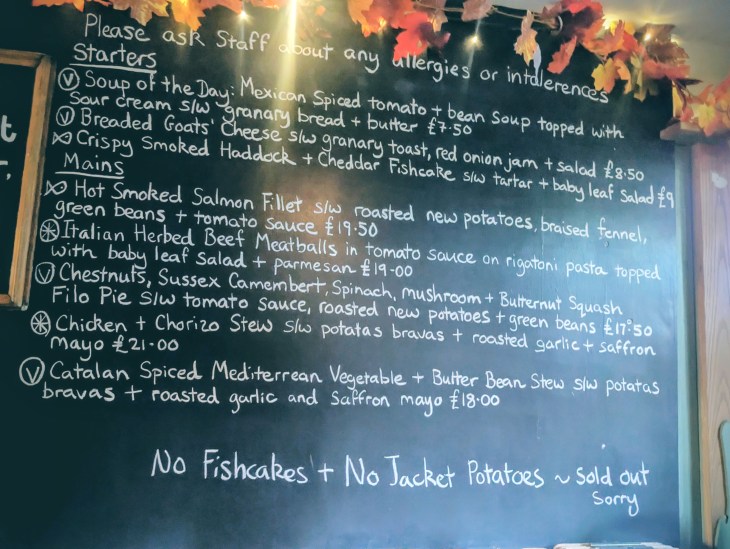 Please ask Staff about any allergies or intolerences
Starters
Ⓥ Soup of the Day: Mexican Spiced tomato + bean soup topped with
Sour cream s/w granary bread + butter £7.50
Ⓥ Breaded Goats' Cheese s/w granary toast, red onion jam + salad £8.50
Crispy Smoked Haddock + Cheddar Fishcake s/w tartar + baby leaf salad £9
Mains
Hot Smoked Salmon Fillet s/w roasted new potatoes, braised fennel,
green beans + tomato sauce £19.50
Italian Herbed Beef Meatballs in tomato sauce on rigatoni pasta topped
with baby leaf salad + parmesan £19.00
Ⓥ Chestnuts, Sussex Camembert, Spinach, mushroom + Butternut Squash
Filo Pie s/w tomato sauce, roasted new potatoes + green beans £17.50
Chicken + Chorizo Stew s/w potatas bravas + roasted garlic + saffron
mayo £21.00
Ⓥ Catalan Spiced Mediterrean Vegetable + Butter Bean Stew s/w potatas
bravas + roasted garlic and Saffron mayo £18.00
No Fishcakes + No Jacket Potatoes ~ Sold out
Sorry